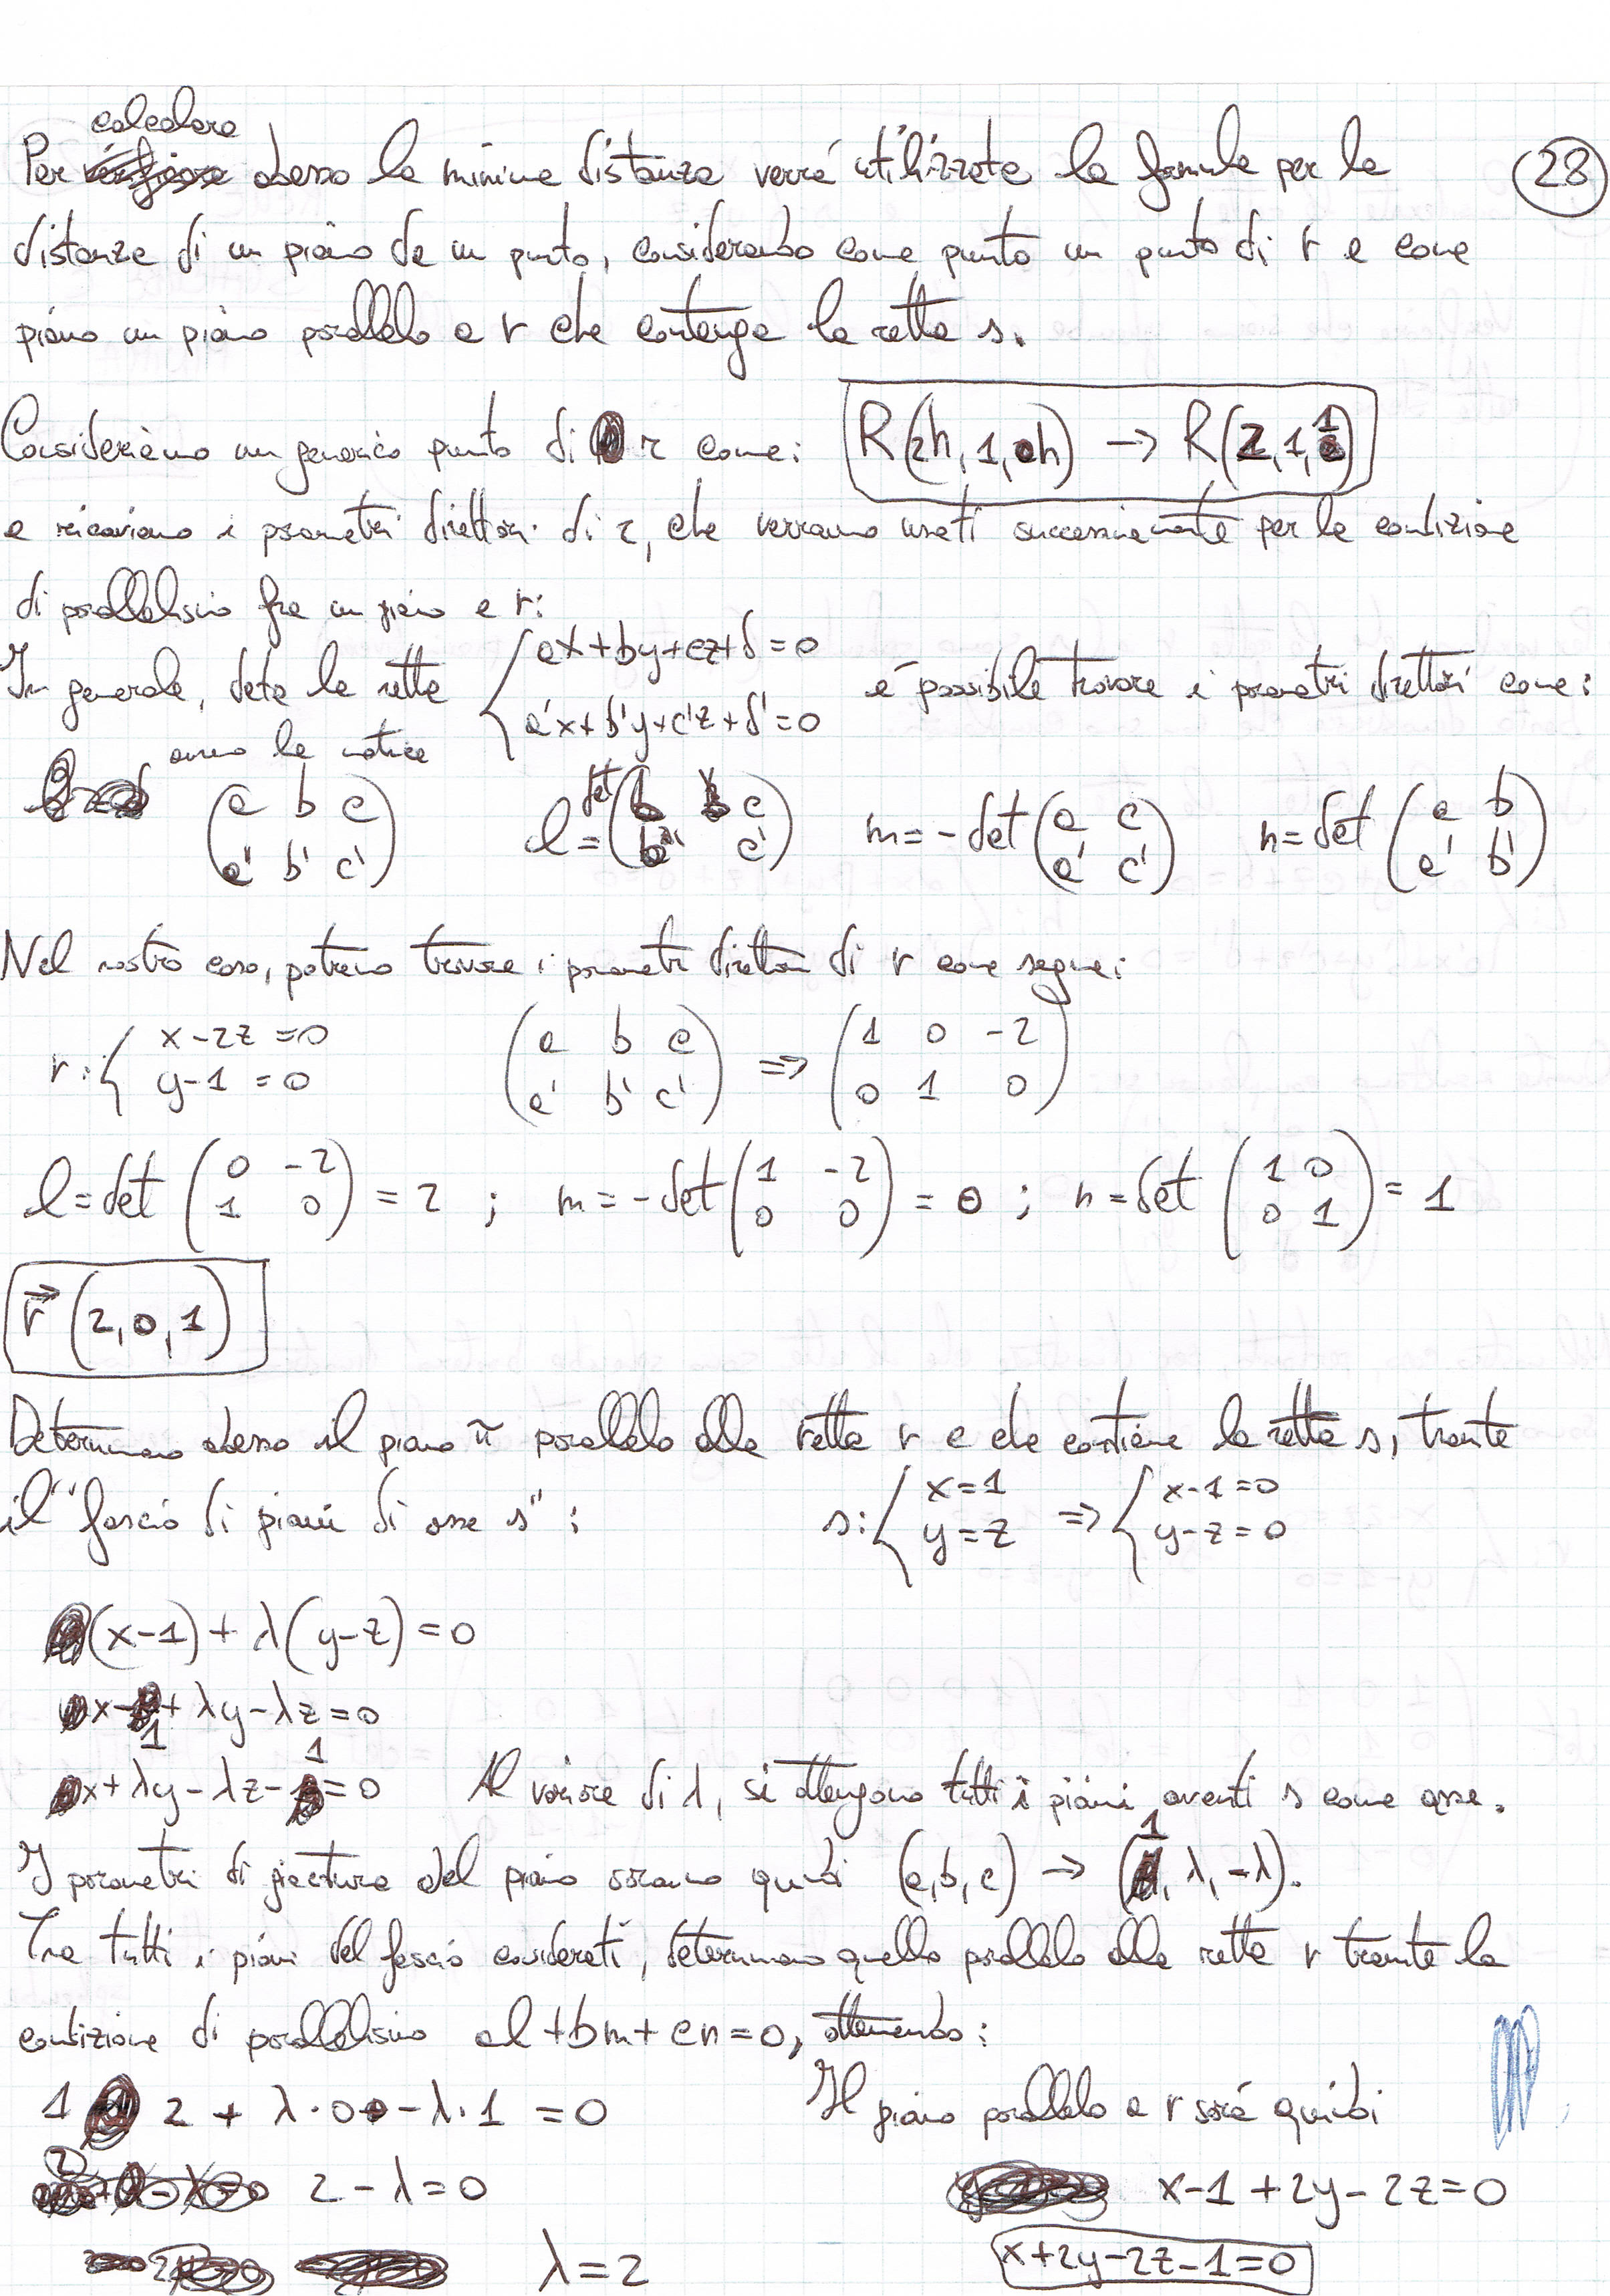 Per calcolare adesso la minima distanza verrà utilizzata la formula per la
28
distanza di un piano da un punto, considerando come punto un punto di r e come
piano un piano parallelo a r che contenga la retta s.
Consideriamo un generico punto di r come: R(2h,1,h) → R(2,1,1)
e ricaviamo i parametri direttori di r, che verranno usati successivamente per la condizione
di parallelismo fra un piano e r:
In generale, data la retta { ax+by+cz+d=0 è possibile trovare i parametri direttori come:
a'x+b'y+c'z+d'=0
avremo la matrice
(a b c) l=det(b c) m=-det(a c) n=det(a b)
(a' b' c') (b' c') (a' c') (a' b')
Nel nostro caso, potremo trovare i parametri direttori di r come segue:
r:{ x-2z=0 (a b c) => (1 0 -2)
y-1=0 (a' b' c') (0 1 0)
l=det(0 -2) =2 ; m=-det(1 -2) =0 ; n=det(1 0) =1
(1 0) (0 0) (0 1)
r⃗ (2,0,1)
Determiniamo adesso il piano π parallelo alla retta r e che contiene la retta s, tramite
il "fascio di piani di asse s": s:{ x=1 => { x-1=0
y=z y-z=0
(x-1)+λ(y-z)=0
x-1+λy-λz=0
x+λy-λz-1=0 Al variare di λ, si ottengono tutti i piani aventi s come asse.
I parametri di giacitura del piano saranno quindi (a,b,c) → (1, λ, -λ).
Tra tutti i piani del fascio considerati, determiniamo quello parallelo alla retta r tramite la
condizione di parallelismo al+bm+cn=0, ottenendo:
1 2 + λ·0 - λ·1 = 0 Il piano parallelo a r sarà quindi
2-λ=0 x-1+2y-2z=0
λ=2 x+2y-2z-1=0